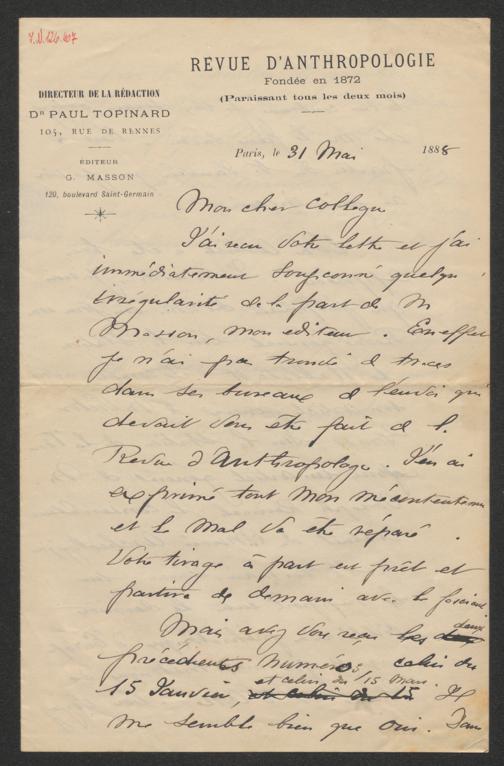 I.N. 126.407
REVUE D'ANTHROPOLOGIE
Fondée en 1872
(Paraissant tous les deux mois)
DIRECTEUR DE LA RÉDACTION
Dr PAUL TOPINARD
105, RUE DE RENNES
ÉDITEUR
G. MASSON
120, boulevard Saint-Germain
Paris, le 31 Mai 1888
Mon cher collègue
J'ai reçu votre lettre et j'ai
immédiatement soupçonné quelqu
irrégularité de la part de M
Masson, mon editeur. En effet
je n'ai pas trouvé de traces
dans ses bureaux de l'envoi qui
devait vous être fait de l.
Revue d'Anthropologie. J'en ai
exprimé tout mon mécontentemen
et le mal va être réparé.
Votre tirage à part est prêt et
partira de demain avec le fascicul
Mais avez vous reçu les deux
précédents numéros, celui du
15 Janvier, et celui du 15 Mars. Il
me semble bien que oui. Dans